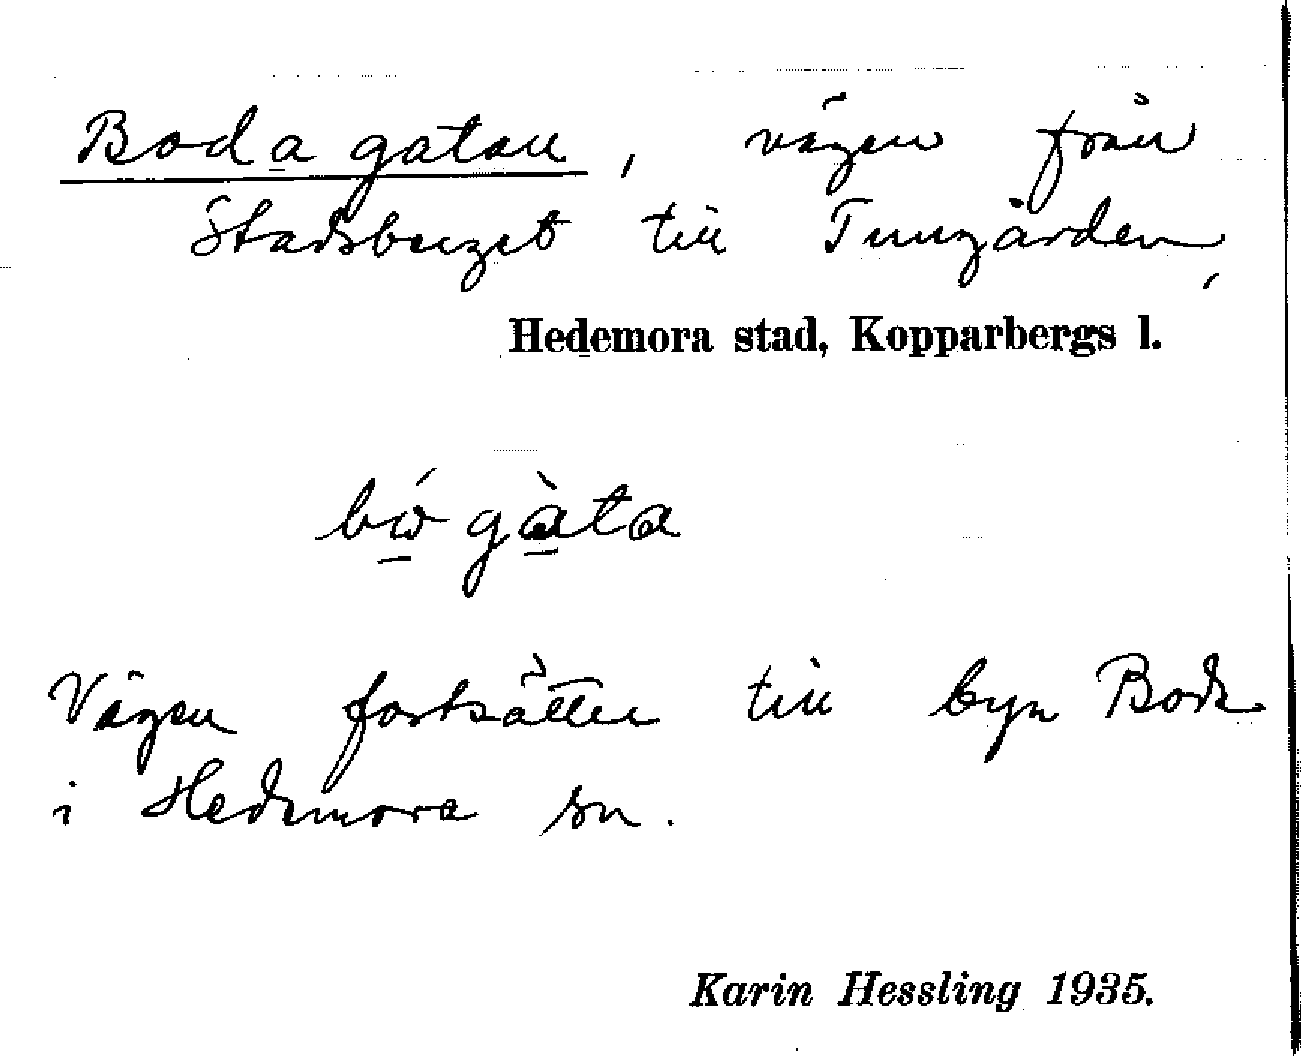 Bodagatan, vägen från
Stadsberget till Tungården,
Hedemora stad, Kopparbergs l.
Vägen fortsätter till byn Boda
i Hedemora sn.
Karin Hessling 1935.